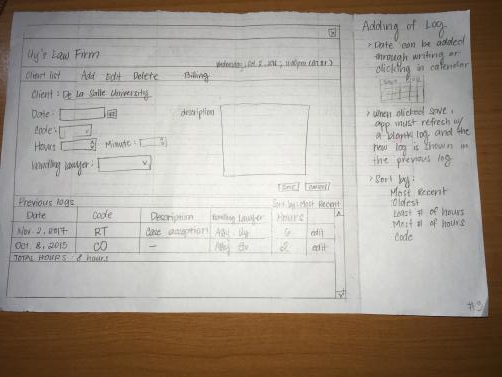 Uy's Law Firm
Client list Add Edit Delete Billing
Client : De La Salle University
Date:
description
Code:
Hours Minute:
Handling lawyer:
Save Cancel
Previous logs Sort by: Most Recent
Date Code Description Handling Lawyer Hours
Nov. 2, 2017 RT Case Atty. Uy 6 edit
Oct. 8, 2015 CO - Atty. 2 edit
TOTAL HOURS : 8 hours
Adding of Log
> Date can be added
through writing or
clicking in calendar
> When clicked save,
app must refresh w/
a blank log and the
new log is shown in
the previous log
> Sort by:
Most Recent
Oldest
Least # of hours
Most # of hours
Code
#3